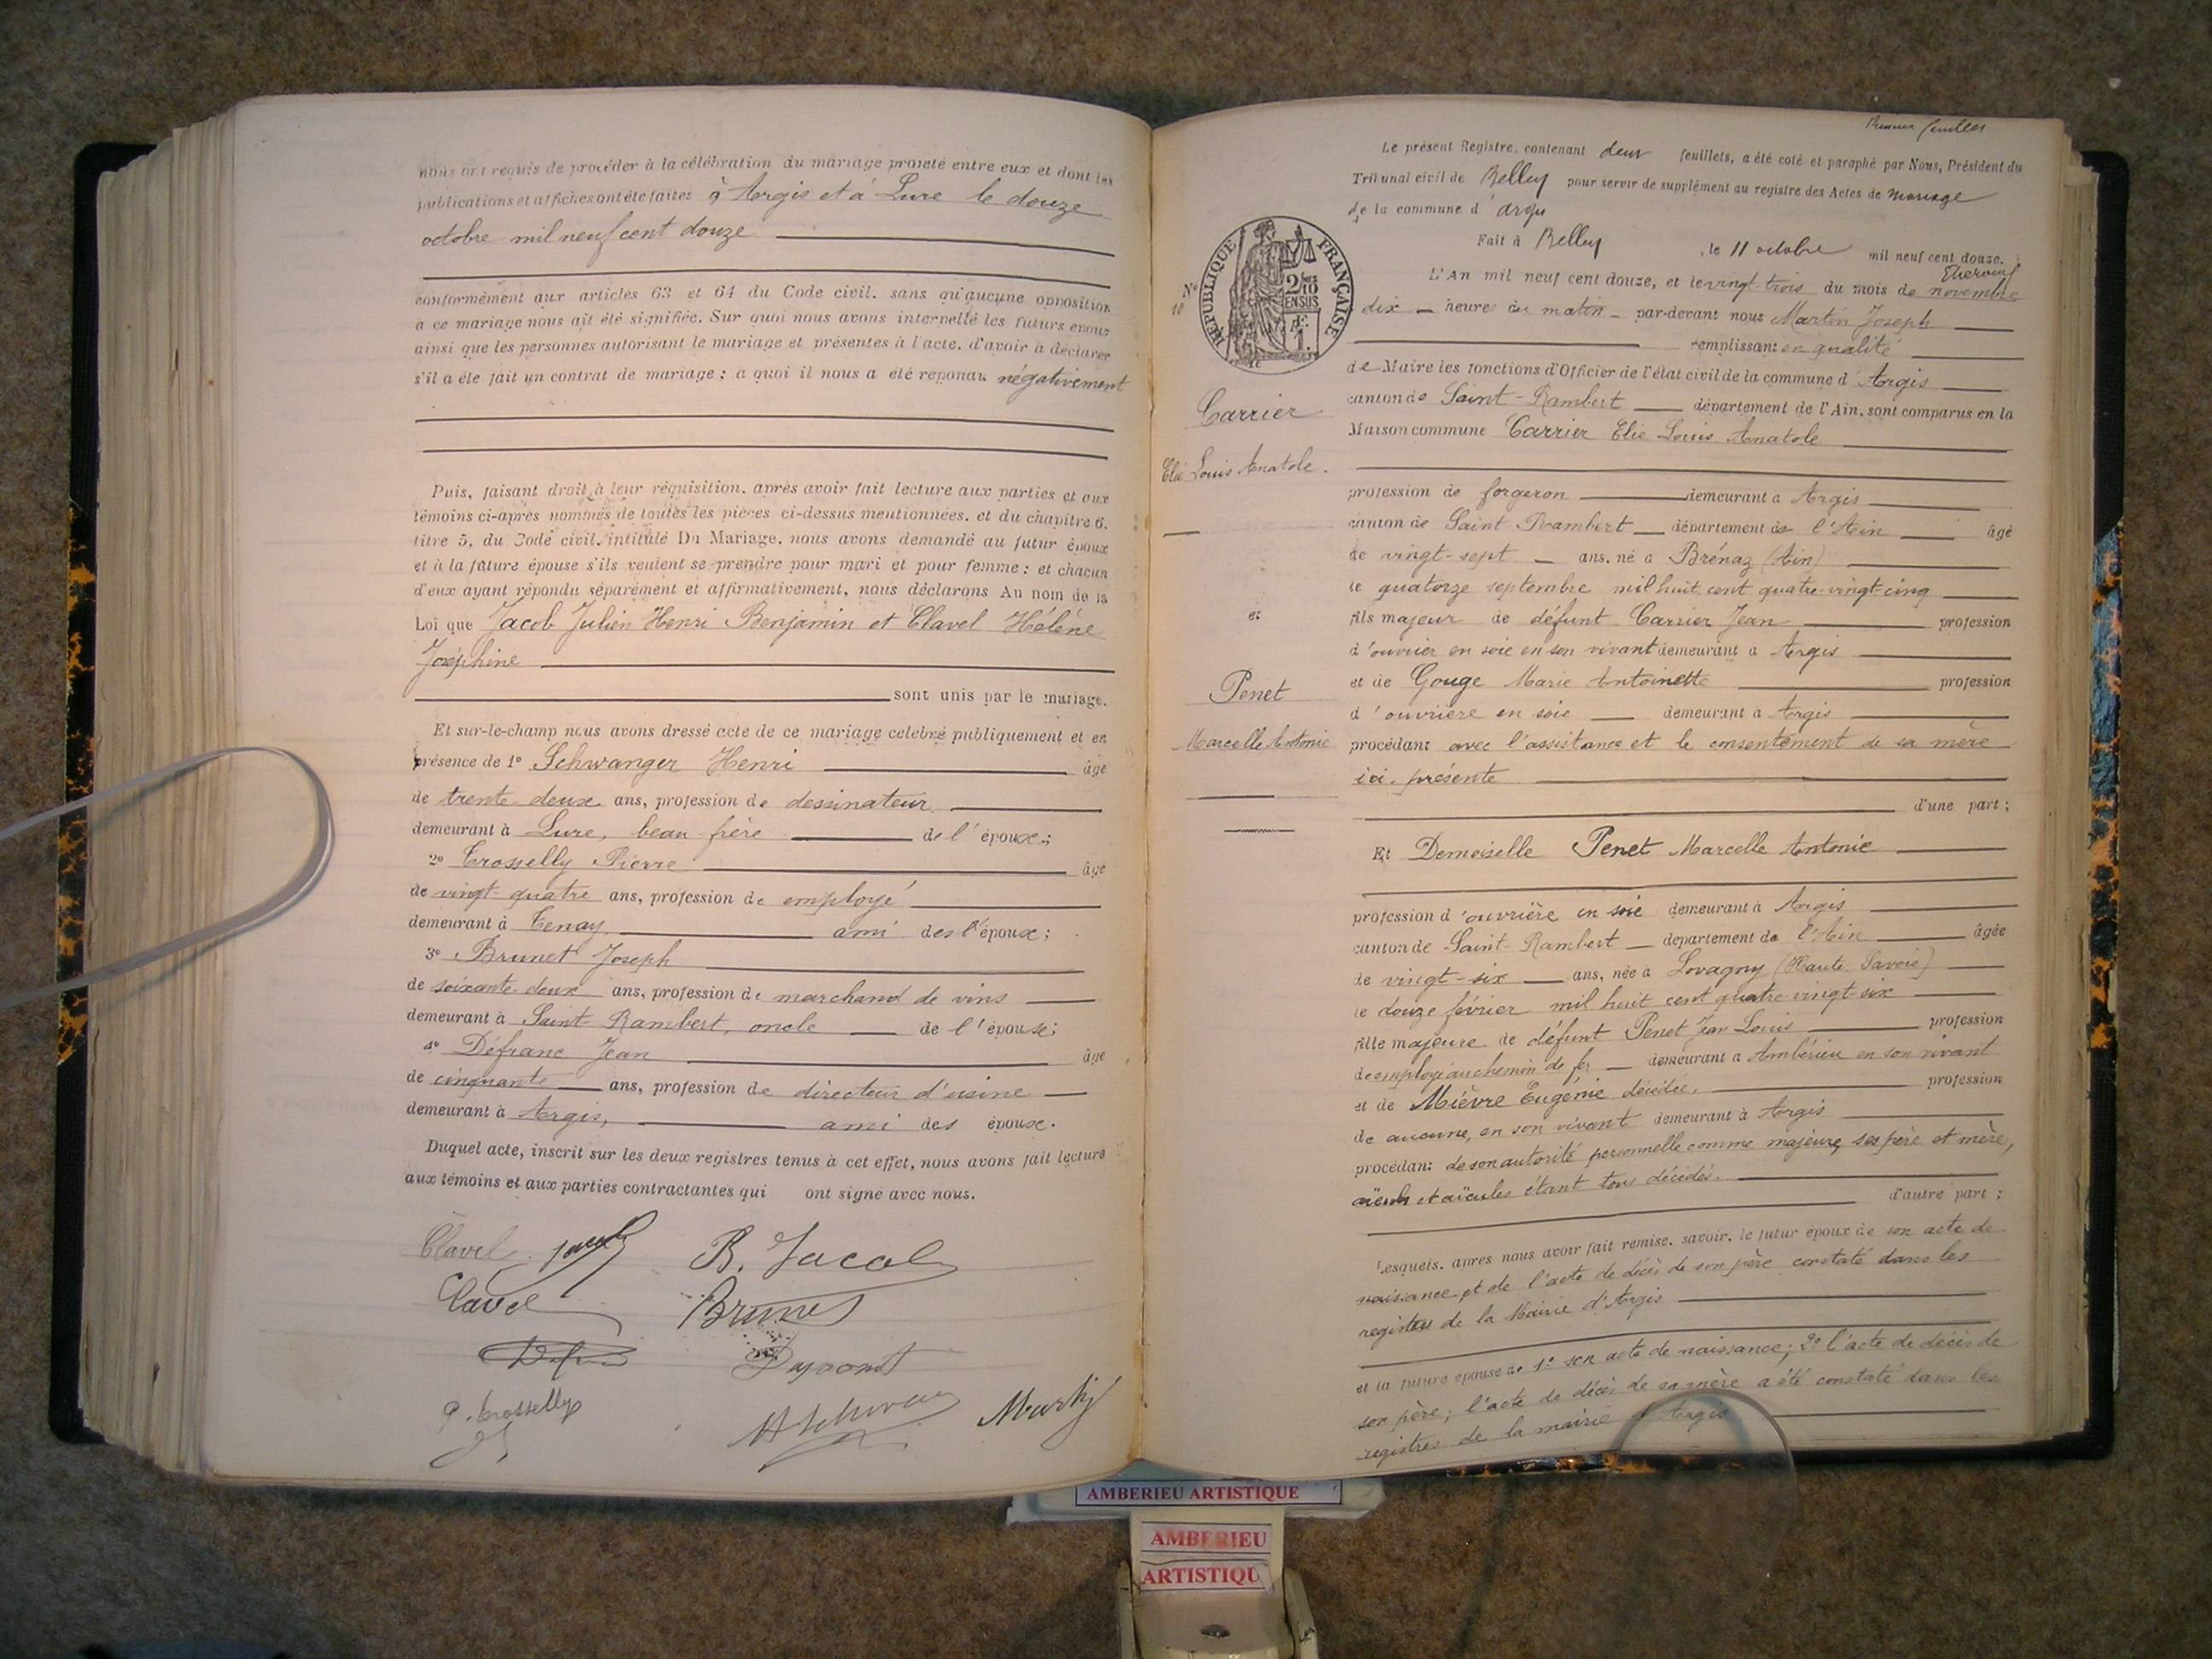 nous ont requis de procéder à la célébration du mariage projeté entre eux et dont les
publications et affiches ont été faites à Argis et à Lure le douze
octobre mil neuf cent douze
conformément aux articles 63 et 64 du Code civil, sans qu'aucune opposition
à ce mariage nous ait été signifiée. Sur quoi nous avons interpellé les futurs époux
ainsi que les personnes autorisant le mariage et présentes à l'acte, d'avoir à déclarer
s'il a été fait un contrat de mariage : à quoi il nous a été répondu négativement
Puis, faisant droit à leur réquisition, après avoir fait lecture aux parties et aux
témoins ci-après nommés de toutes les pièces ci-dessus mentionnées, et du chapitre 6,
titre 5, du Code civil, intitulé Du Mariage, nous avons demandé au futur époux
et à la future épouse s'ils veulent se prendre pour mari et pour femme : et chacun
d'eux ayant répondu séparément et affirmativement, nous déclarons Au nom de la
Loi que Jacob Julien Henri Benjamin et Clavel Hélène
Joséphine
sont unis par le mariage.
Et sur-le-champ nous avons dressé acte de ce mariage célébré publiquement et en
présence de 1° Schwanger Henri âgé
de trente-deux ans, profession de dessinateur
demeurant à Lure, beau-frère de l'épouse;
2° Trosselly Pierre âgé
de vingt-quatre ans, profession de employé
demeurant à Tenay, ami des l'époux;
3° Brunet Joseph
de soixante-deux ans, profession de marchand de vins
demeurant à Saint-Rambert, oncle de l'épouse;
4° Défranc Jean âgé
de cinquante ans, profession de directeur d'usine
demeurant à Argis, ami des époux.
Duquel acte, inscrit sur les deux registres tenus à cet effet, nous avons fait lecture
aux témoins et aux parties contractantes qui ont signé avec nous.
Clavel B. Jacob
Clavel Brunet
Dupont
P. Trosselly Martin
Le présent Registre, contenant deux feuillets, a été coté et paraphé par Nous, Président du
Tribunal civil de Belley pour servir de supplément au registre des Actes de mariage
de la commune d'Argis
Fait à Belley, le 11 octobre mil neuf cent douze.
N° 10
RÉPUBLIQUE FRANÇAISE
2/10 EN SUS
1 F.
L'An mil neuf cent douze, et le vingt-trois du mois de novembre
dix heures du matin par-devant nous Martin Joseph
remplissant en qualité
de Maire les fonctions d'Officier de l'état civil de la commune d'Argis
canton de Saint-Rambert département de l'Ain, sont comparus en la
Maison commune Carrier Elie Louis Anatole
Carrier
Elie Louis Anatole.
et
Penet
Marcelle Antonie
profession de forgeron demeurant à Argis
canton de Saint Rambert département de l'Ain âgé
de vingt-sept ans, né à Brénaz (Ain)
le quatorze septembre mil huit cent quatre-vingt-cinq
fils majeur de défunt Carrier Jean profession
d'ouvrier en soie en son vivant demeurant à Argis
et de Gouge Marie Antoinette profession
d'ouvrière en soie demeurant à Argis
procédant avec l'assistance et le consentement de sa mère
ici présente
d'une part ;
Et Demoiselle Penet Marcelle Antonie
profession d'ouvrière en soie demeurant à Argis
canton de Saint-Rambert département de l'Ain âgée
de vingt-six ans, née à Lovagny (Haute-Savoie)
le douze février mil huit cent quatre-vingt-six
fille majeure de défunt Penet Jean Louis profession
de employé au chemin de fer demeurant à Ambérieu en son vivant
et de Mièvre Eugénie décédée, profession
de aucune, en son vivant demeurant à Argis
procédant de son autorité personnelle comme majeure, ses père et mère,
aïeuls et aïeules étant tous décédés.
d'autre part ;
Lesquels, après nous avoir fait remise, savoir, le futur époux de son acte de
naissance et de l'acte de décès de son père constaté dans les
registres de la Mairie d'Argis
et la future épouse de 1° son acte de naissance; 2° l'acte de décès de
son père; l'acte de décès de sa mère a été constaté dans les
registres de la mairie d'Argis
AMBERIEU ARTISTIQUE
AMBERIEU
ARTISTIQU